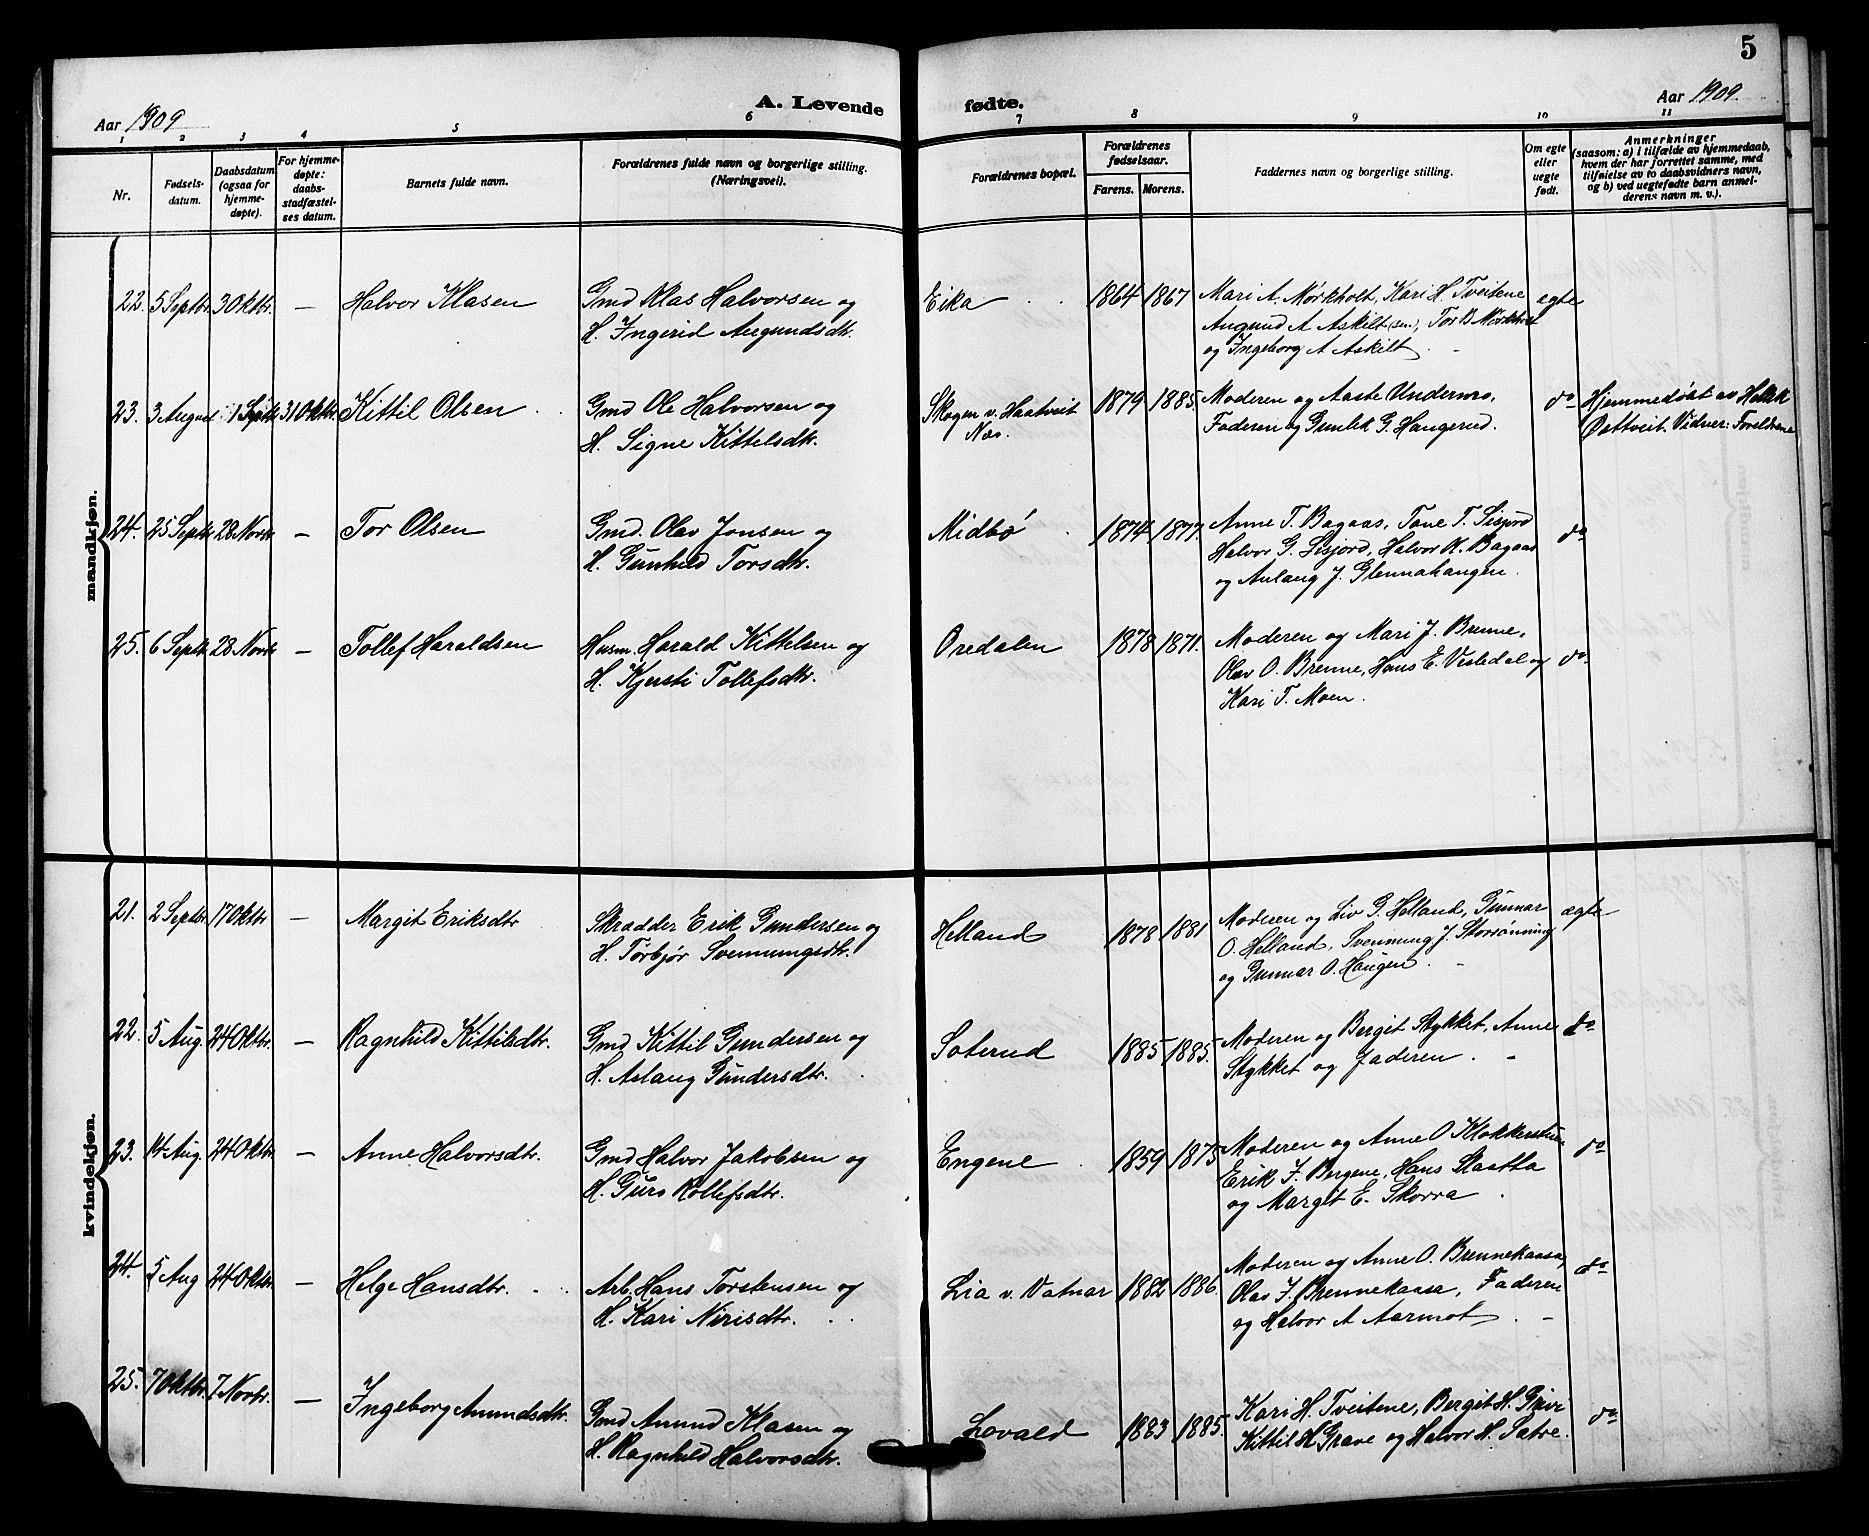 5
Aar 1909
A. Levende fødte.
Aar 1909.
1 2 3 4 5 6 7 8 9 10 11
Nr.
Fødsels-
datum.
Daabsdatum
(ogsaa for
hjemme-
døpte).
For hjemme-
døpte:
daabs-
stadfæstel-
ses datum.
Barnets fulde navn.
Forældrenes fulde navn og borgerlige stilling.
(Næringsvei).
Forældrenes bopæl.
Forældrenes
fødselsaar.
Farens. Morens.
Faddernes navn og borgerlige stilling.
Om egte
eller
uegte
født.
Anmerkninger
(saasom: a) i tilfælde av hjemmedaab,
hvem der har forrettet samme, med
tilføielse av to daabsvidners navn,
og b) ved uegtefødte barn anmel-
derens navn m. v.).
mandkjøn.
22. 5 Septbr. 3 Oktbr. — Halvor Klasen
Gmd Klas Halvorsen og
H. Ingerid Augundsdtr.
Eika 1864 1867
Mari A. Mørkholt, Kari H. Tveitene
Augund A Askilt (sen), Tor B Mørkholt
og Ingeborg A Askilt
egte
23. 3 August 1 Septbr 31 Oktbr. Kittil Olsen
Gmd Ole Halvorsen og
H. Signe Kittelsdtr.
Skogen v. Haatveit
Nes.
1879 1885.
Moderen og Aaste Undernes,
Faderen og Gunlek G. Haugerud.
do
Hjemmedøbt av Hellik
Østtveit. Vidner: Foreldrene
24. 25 Septbr 28 Novbr — Tor Olsen
Gmd. Olav Jonsen og
H. Gunhild Torsdtr.
Midbø 1874 1877.
Anne T. Bagaas, Tone T. Sisjord
Halvor G. Sisjord, Halvor K. Bagaas
og Aulaug J. Glennahaugen.
do
25. 6 Septbr 28 Novbr — Tollef Haraldsen
Husm. Harald Kittelsen og
H. Kjersti Tollefsdtr.
Oredalen 1878 1871.
Moderen og Mari J. Brenne,
Olav O. Brenne, Hans E. Vesledal og
Kari T. Moen.
do
kvindekjøn.
21. 2 Septbr. 17 Oktbr — Margit Eriksdtr
Skrædder Erik Gundersen og
H. Torbjør Svennungsdtr.
Helland 1878 1881
Moderen og Liv G. Helland, Gunnar
O. Helland, Svennung J. Storrønning
og Gunnar O. Haugen.
ægte
22. 5 Aug. 24 Oktbr. — Ragnhild Kittilsdtr.
Gmd Kittil Gundersen og
H. Aslaug Gundersdtr.
Soterud 1885 1885.
Moderen og Bergit Stykket, Anne
Stykket og Faderen.
do
23. 14 Aug. 24 Oktbr. — Anne Halvorsdtr.
Gmd Halvor Jakobsen og
H. Guro Rollefsdtr.
Engene 1859 1875
Moderen og Anne O Klokkerstuen
Erik J. Bergene, Hans Staatta
og Margit E. Skorra
do
24. 5 Aug 24 Oktbr. — Helge Hansdtr.
Arb. Hans Torstensen og
H. Kari Nirisdtr.
Lia v. Vatnar 1882 1886.
Moderen og Anne O. Brennekaasa,
Olav J. Brennekaasa, Faderen
og Halvor A Aarmot
do
25. 7 Oktbr. 7 Novbr. — Ingeborg Amundsdtr.
Gmd Amund Klasen og
H. Ragnhild Halvorsdtr.
Lovald 1883 1885.
Kari H. Tveitene, Bergit H. Gravi
Kittil H Grave og Halvor H. Satre.
do